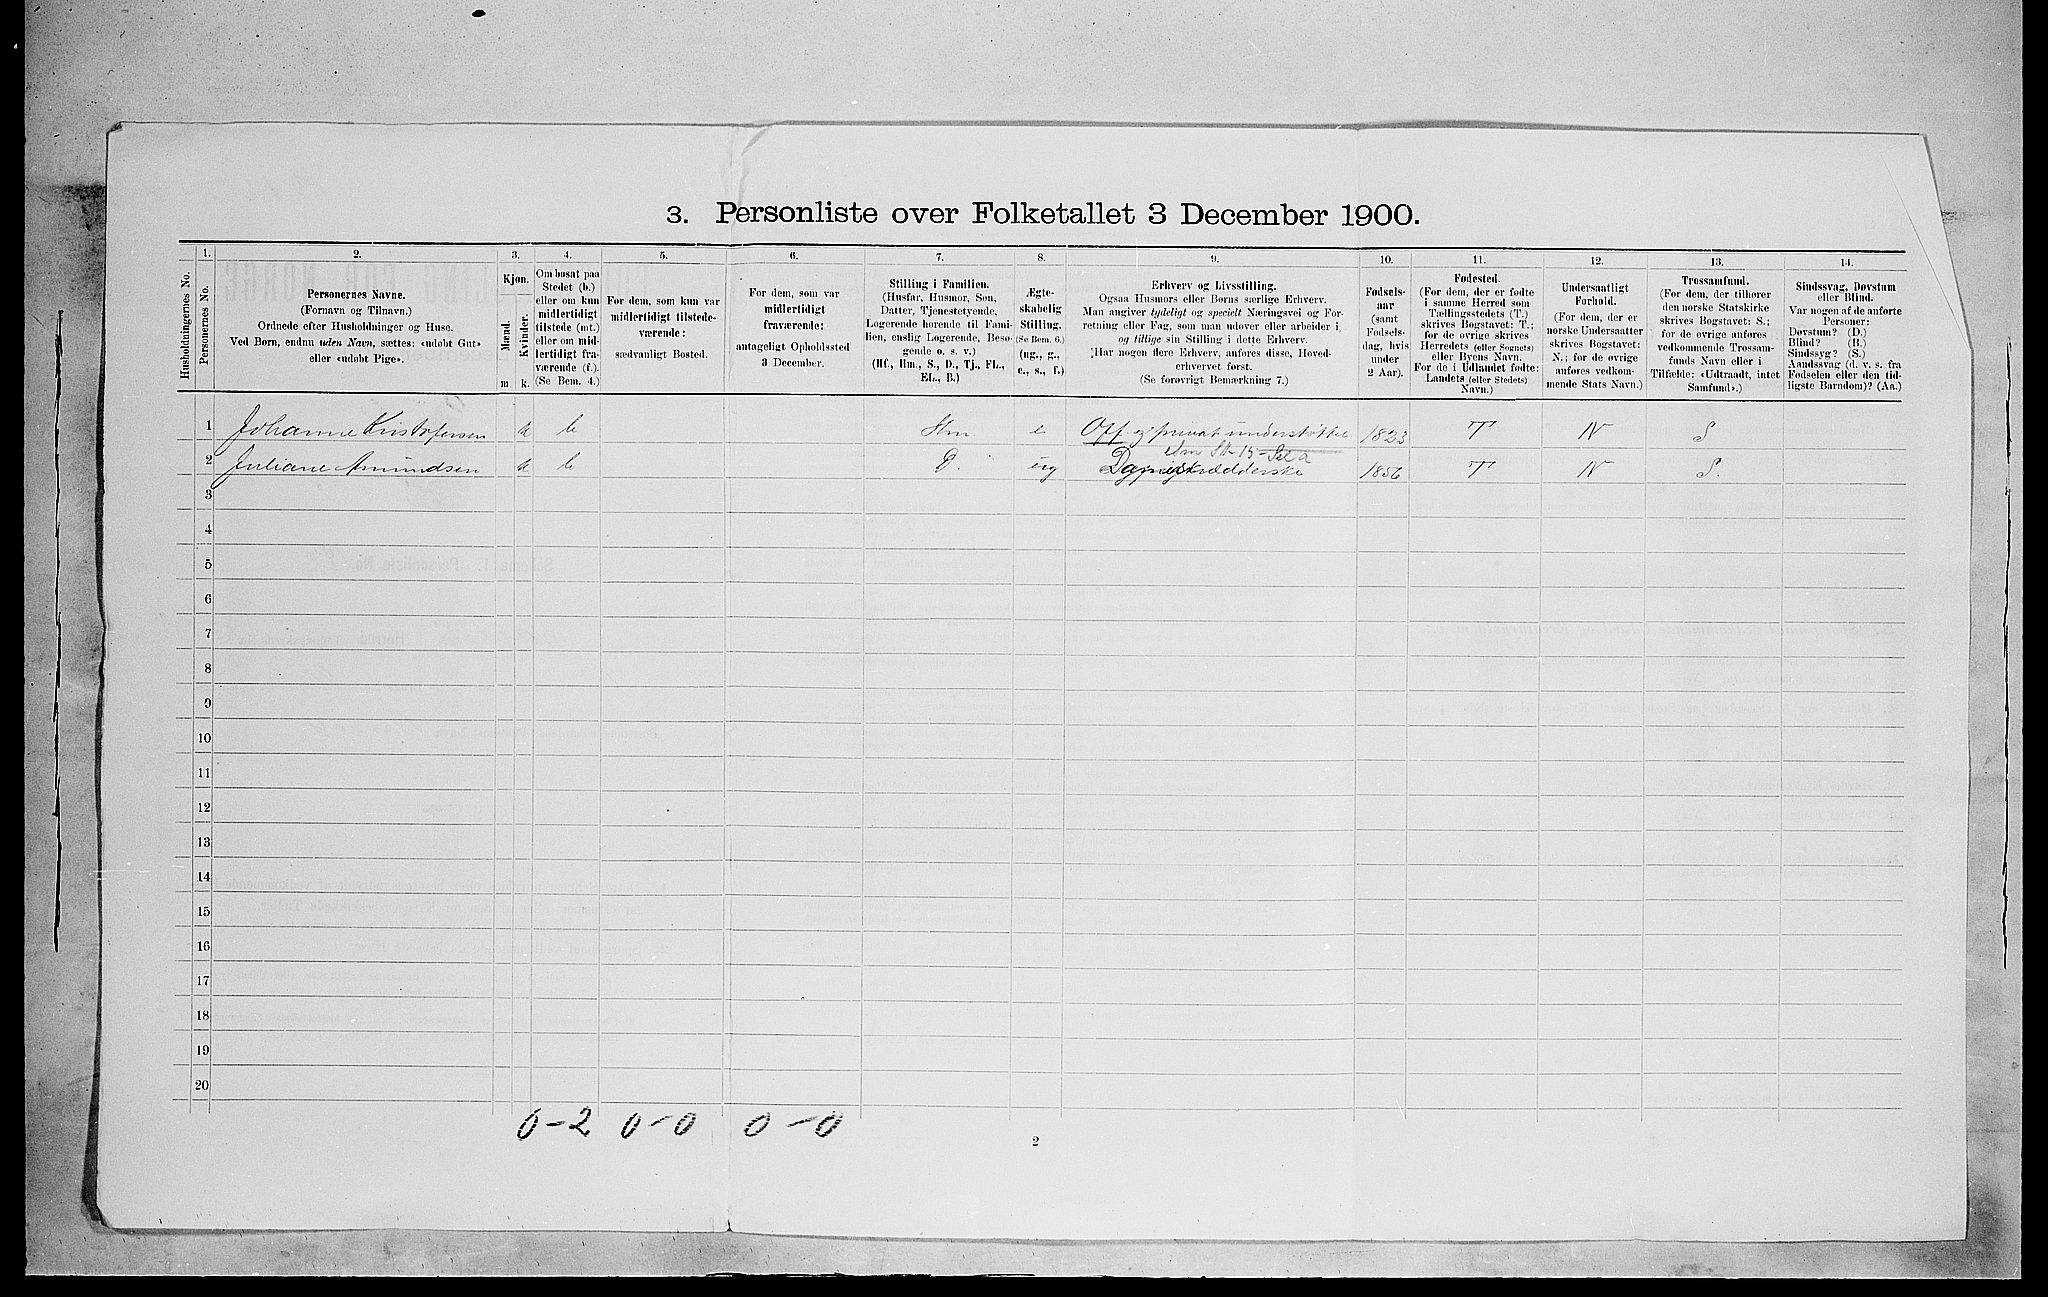 3. Personliste over Folketallet 3 December 1900.
Husholdningernes No.
1.
Personernes No.
2.
Personernes Navne.
(Fornavn og Tilnavn.)
Ordnede efter Husholdninger og Huse.
Ved Børn, endnu uden Navn, sættes: «udøbt Gut»
eller «udøbt Pige».
3.
Kjøn.
Mænd.
Kvinder.
m k.
4.
Om bosat paa
Stedet (b.)
eller om kun
midlertidigt
tilstede (mt.)
eller om mid-
lertidigt fra-
værende (f.)
(Se Bem. 4.)
5.
For dem, som kun var
midlertidigt tilstede-
værende:
sædvanligt Bosted.
6.
For dem, som var
midlertidigt
fraværende:
antageligt Opholdssted
3 December.
7.
Stilling i Familien.
(Husfar, Husmor, Søn,
Datter, Tjenestetyende,
Logerende hørende til Fami-
lien, enslig Logerende, Besø-
gende o. s. v.)
(Hf., Hm., S., D., Tj., FL.,
EL., B.)
8.
Ægte-
skabelig
Stilling.
(Se Bem. 6.)
(ug., g.,
e., s., f.)
9.
Erhverv og Livsstilling.
Ogsaa Husmors eller Børns særlige Erhverv.
Man angiver tydeligt og specielt Næringsvei og For-
retning eller Fag, som man udøver eller arbeider i,
og tillige sin Stilling i dette Erhverv.
(Har nogen flere Erhverv, anføres disse, Hoved-
erhvervet først.
(Se forøvrigt Bemærkning 7.)
10.
Fødsels-
aar
(samt
Fødsels-
dag, hvis
under
2 Aar).
11.
Fødested.
(For dem, der er fødte
i samme Herred som
Tællingsstedets (T.)
skrives Bogstavet: T.;
for de øvrige skrives
Herredets (eller Sognets)
eller Byens Navn.
For de i Udlandet fødte:
Landets (eller Stedets)
Navn.)
12.
Undersaatligt
Forhold.
(For dem, der er
norske Undersaatter
skrives Bogstavet:
N.; for de øvrige
anføres vedkom-
mende Stats Navn.)
13.
Trossamfund.
(For dem, der tilhører
den norske Statskirke
skrives Bogstavet: S.;
for de øvrige anføres
vedkommende Trossam-
funds Navn eller i
Tilfælde: «Udtraadt, intet
Samfund».)
14.
Sindssvag, Døvstum
eller Blind.
Var nogen af de anførte
Personer:
Døvstum? (D.)
Blind? (B.)
Sindssyg? (S.)
Aandssvag (d. v. s. fra
Fødselen eller den tid-
ligste Barndom)? (Aa.)
1 Johanne Kristofersen k b Hm e Off og privat understøttet 1823 T N S
2 Juliane Amundsen k b D. ug 1856 T N S.
3
4
5
6
7
8
9
10
11
12
13
14
15
16
17
18
19
20
0-2 0-0 0-0
2